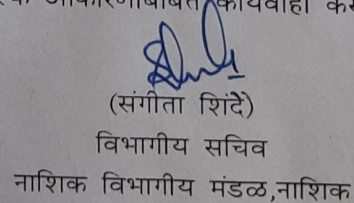 कार्यवाही
(संगीता शिंदे)
विभागीय सचिव
नाशिक विभागीय मंडळ,नाशिक